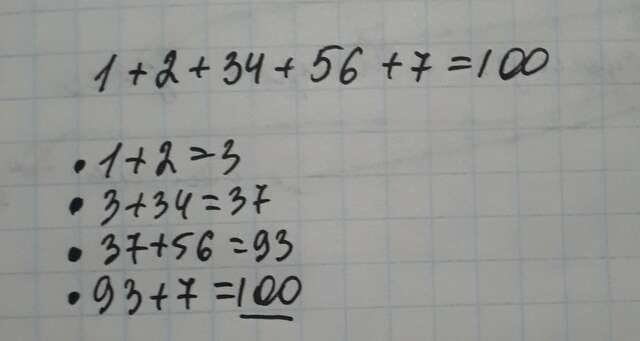 1 + 2 + 34 + 56 + 7 = 100
• 1 + 2 = 3
• 3 + 34 = 37
• 37 + 56 = 93
• 93 + 7 = 100